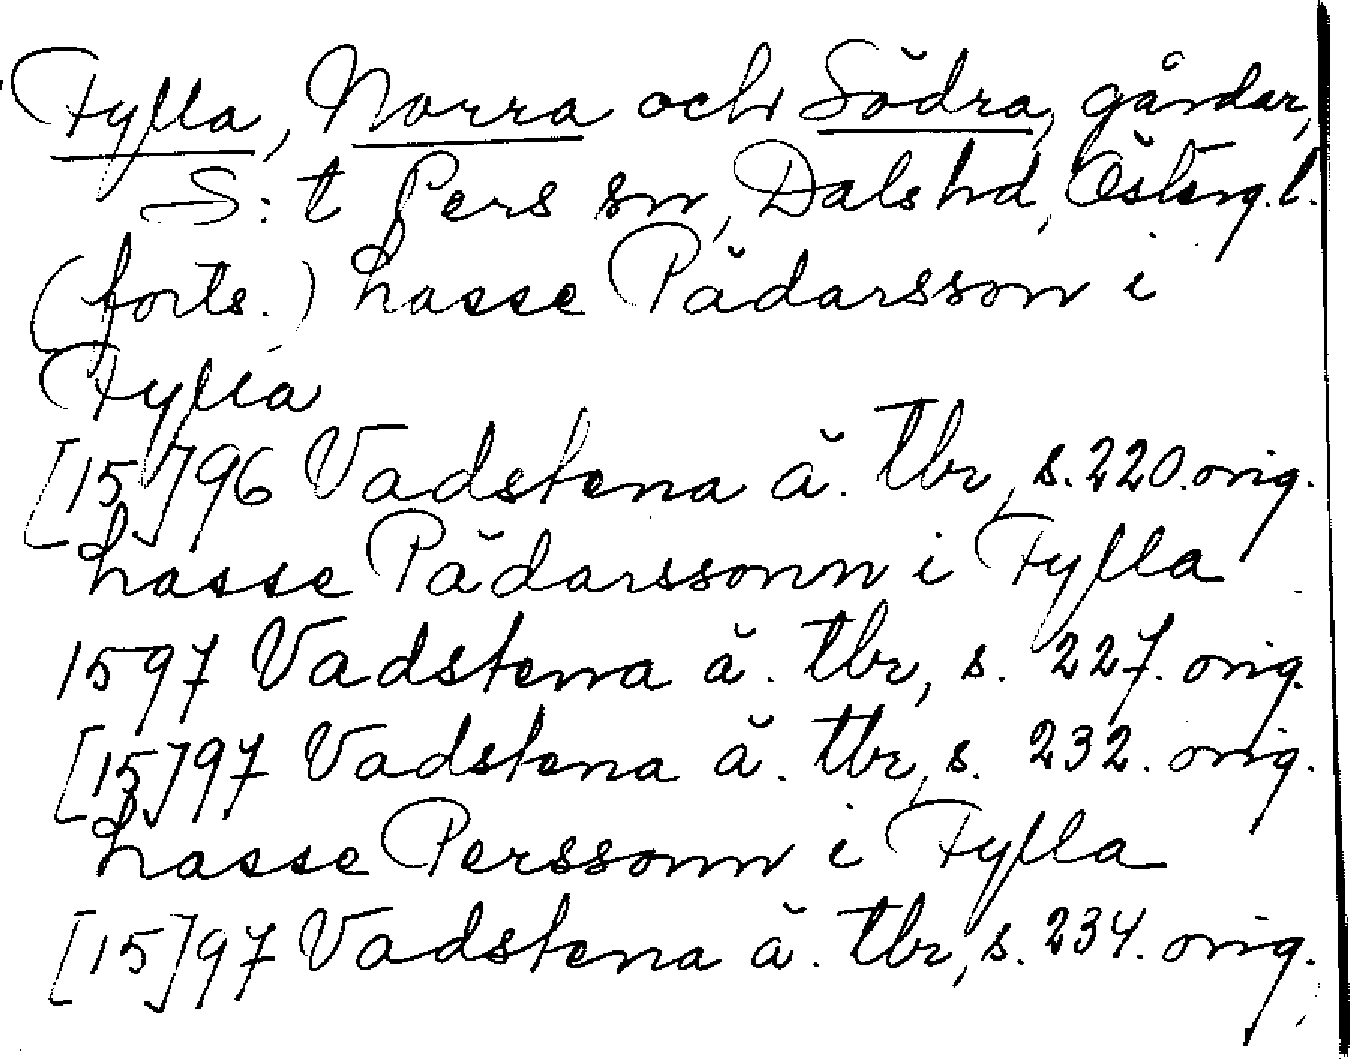 Fylla, Norra och Södra, gårdar,
S:t Pers sn, Dals hd, Österg.l.
(forts.) Lasse Pädarsson i
Fylla
[15]96 Vadstena ä. tbr, s. 220. orig.
Lasse Pädarssonn i Fylla
1597 Vadstena ä. tbr, s. 227. orig.
[15]97 Vadstena ä. tbr, s. 232. orig.
Lasse Perssonn i Fylla
[15]97 Vadstena ä. tbr, s. 234. orig.